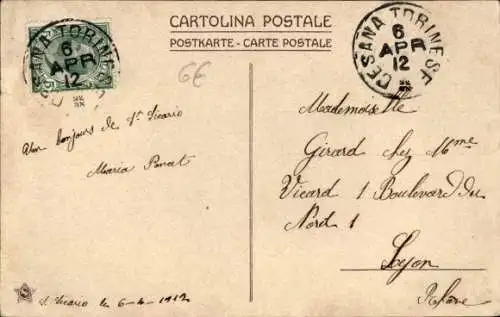 CARTOLINA POSTALE
POSTKARTE - CARTE POSTALE
CESANA TORINESE
6
APR
12
CESANA TORINESE
6
APR
12
6€
bonjours de St Sicario
Maria
S. Sicario le 6-4-1912
Mademoiselle
Girard chez Mme
Vicard 1 Boulevard du
Nord 1
Lyon
Rhône